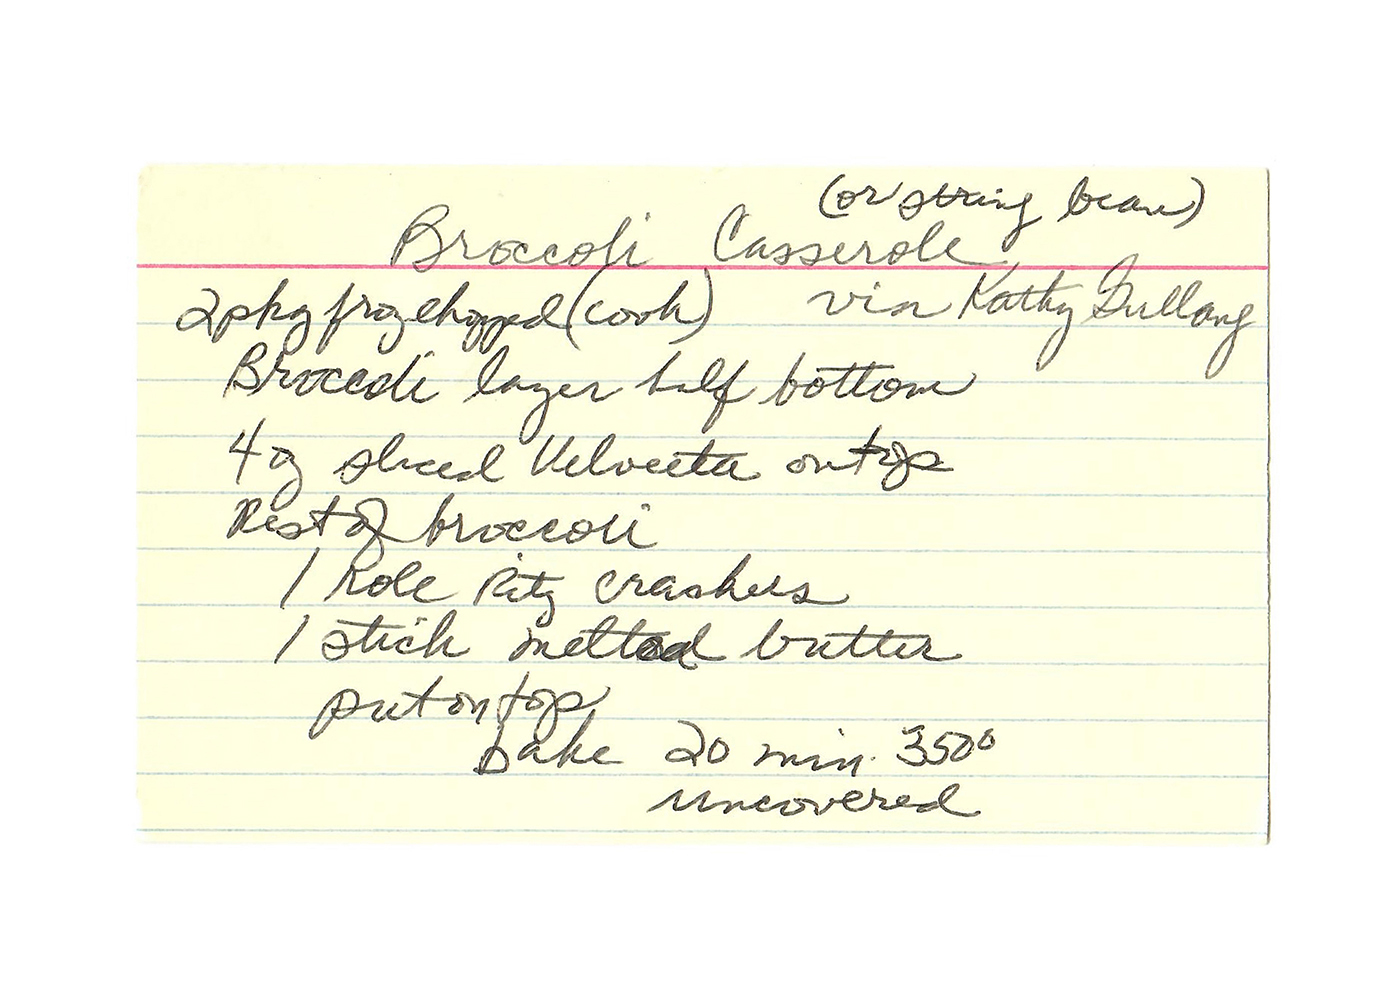 (or string bean)
Broccoli Casserole
2 pkg froz chopped (cook) via Kathy
Broccoli layer half bottom
4 oz sliced Velveeta on top
Rest of broccoli
1 Role Ritz crackers
1 stick melted butter
put on top
bake 20 min. 350°
uncovered